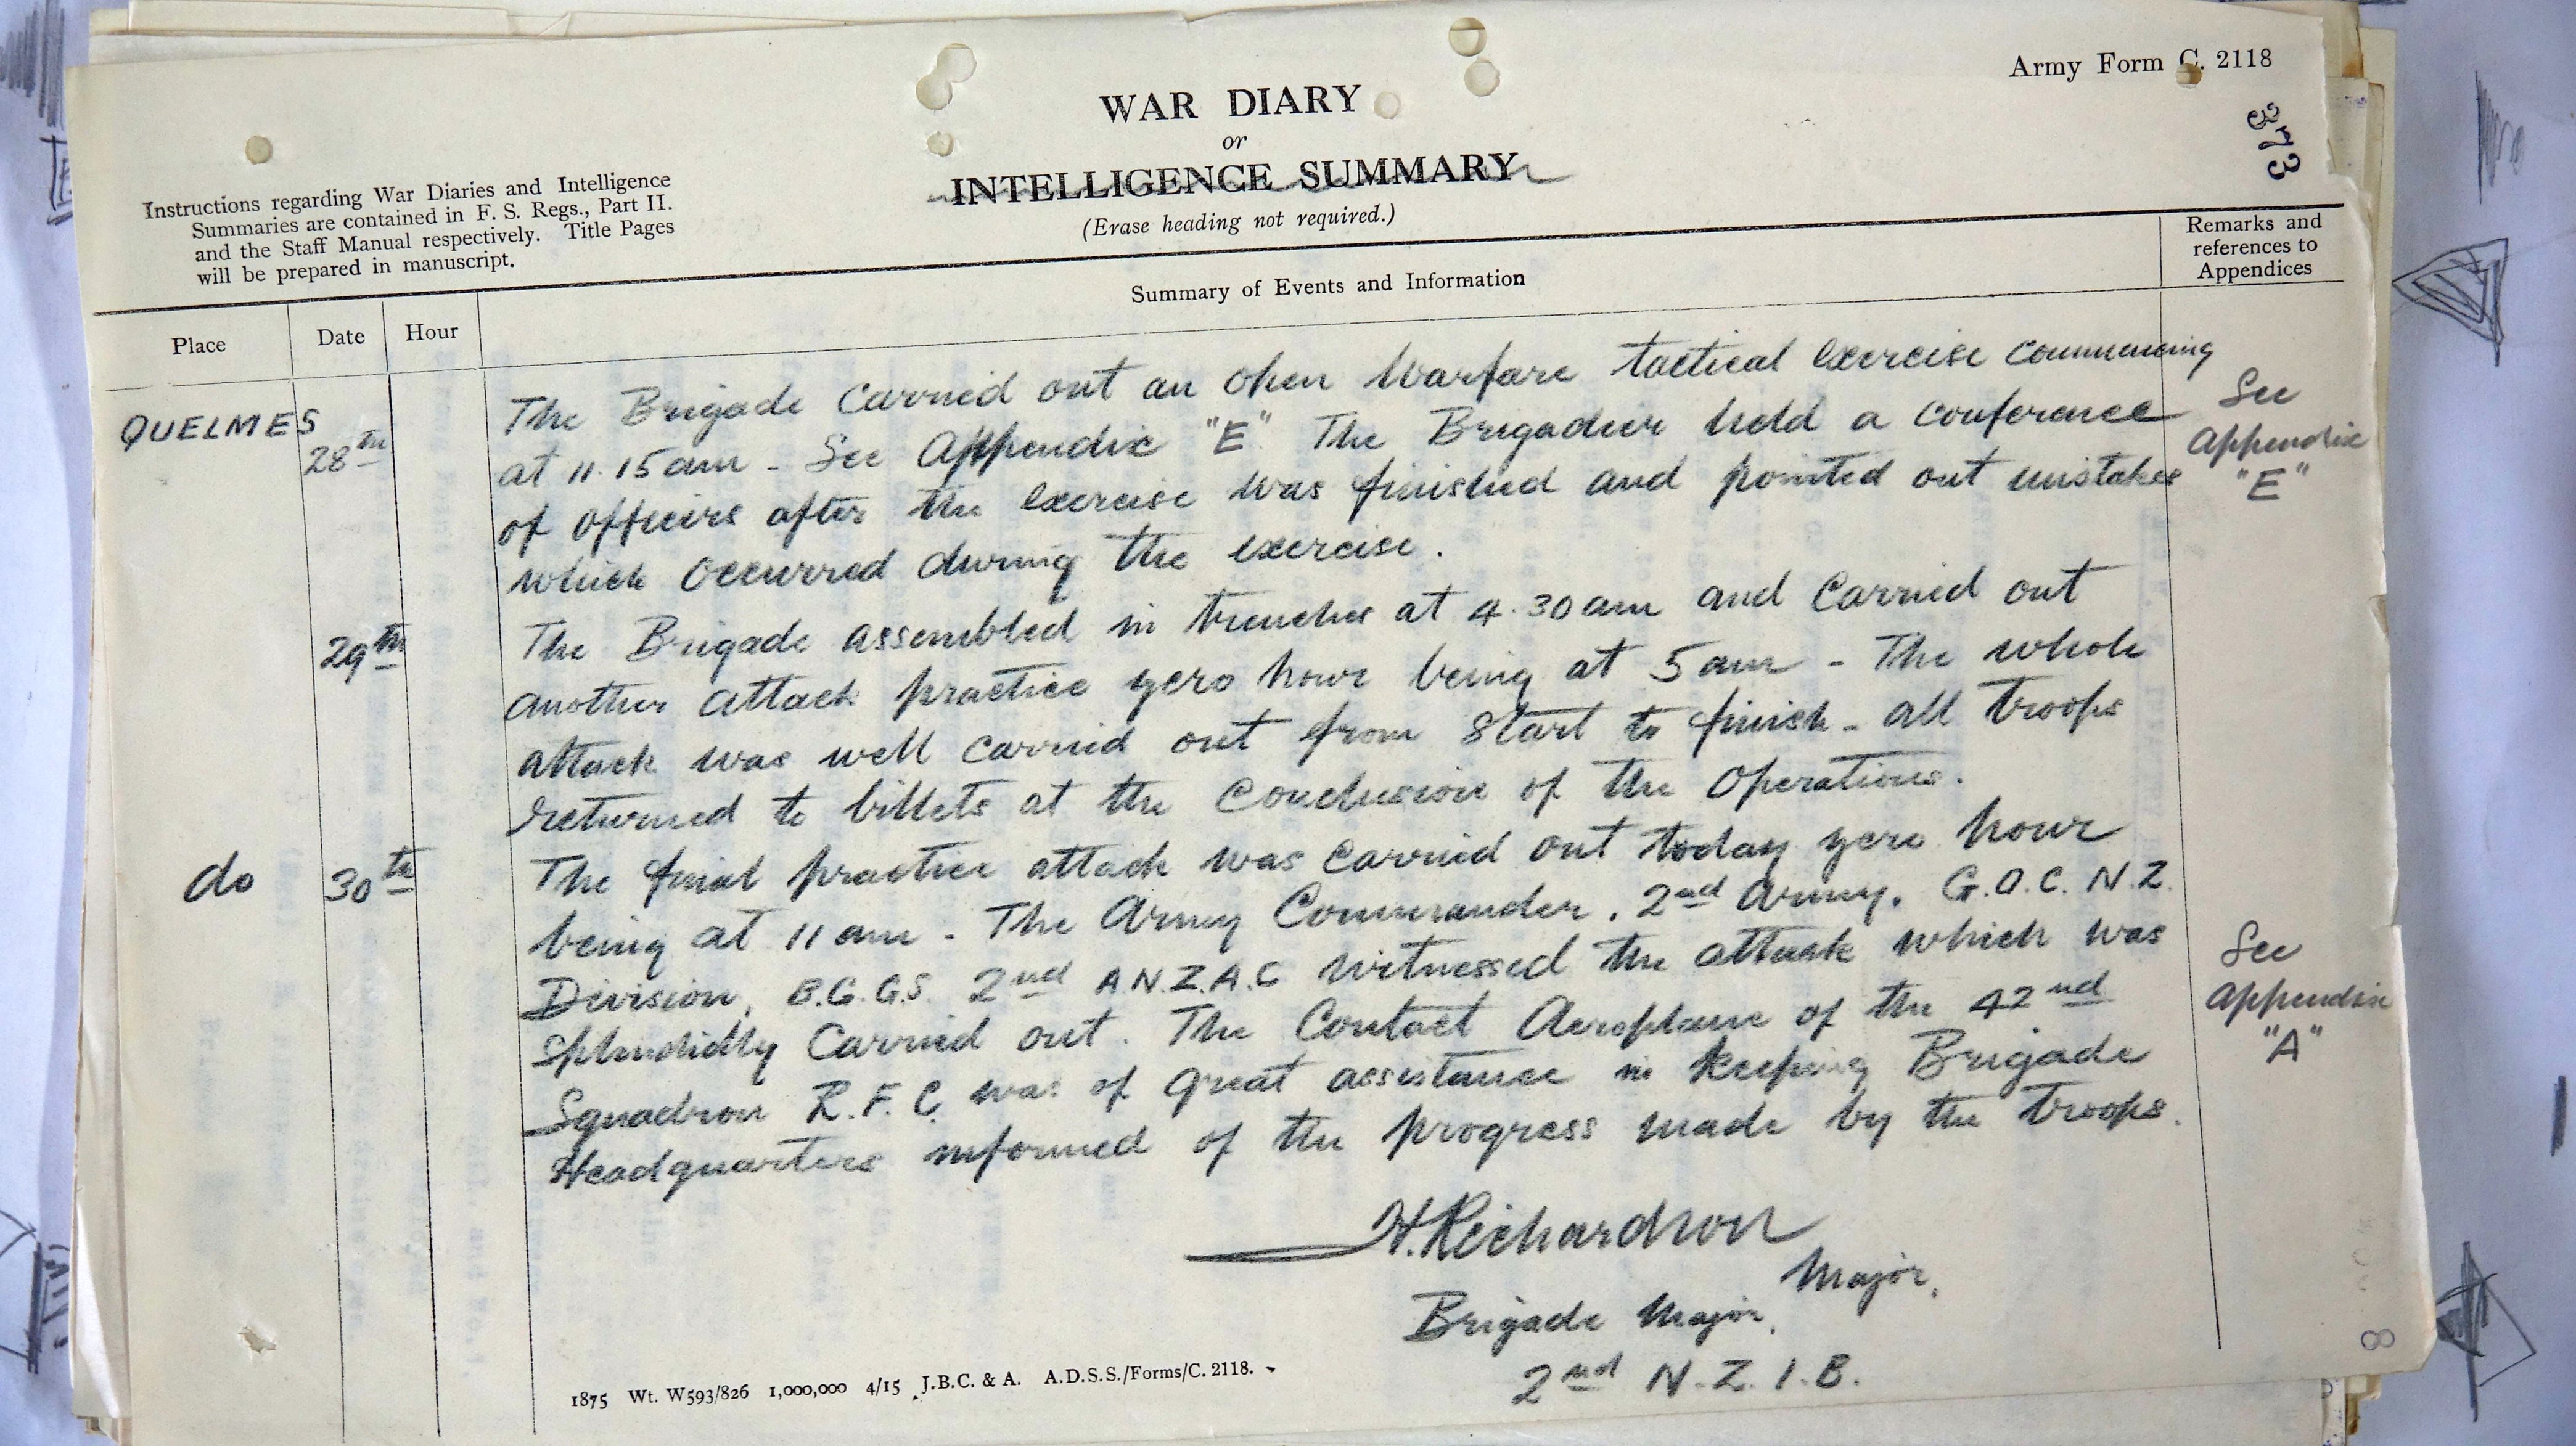 Army Form C. 2118
373
WAR DIARY
or
INTELLIGENCE SUMMARY
(Erase heading not required.)
Instructions regarding War Diaries and Intelligence
Summaries are contained in F. S. Regs., Part II.
and the Staff Manual respectively. Title Pages
will be prepared in manuscript.
Place
Date
Hour
Summary of Events and Information
Remarks and
references to
Appendices
QUELMES
28th
The Brigade carried out an open Warfare tactical exercise commencing
at 11.15 am - See Appendix "E" The Brigadier held a conference
of officers after the exercise was finished and pointed out mistakes
which occurred during the exercise.
See
Appendix
"E"
29th
The Brigade assembled in trenches at 4.30 am and carried out
another attack practice zero hour being at 5 am - The whole
attack was well carried out from start to finish - all troops
returned to billets at the conclusion of the operations.
do
30th
The final practice attack was carried out today zero hour
being at 11 am - The Army Commander. 2nd Army. G.O.C. N.Z.
Division, B.G.G.S. 2nd A.N.Z.A.C witnessed the attack which was
splendidly carried out. The Contact Aeroplane of the 42nd
Squadron R.F.C. was of great assistance in keeping Brigade
Headquarters informed of the progress made by the troops.
See
appendix
"A"
H. Richardson
Major.
Brigade Major.
2nd N.Z.I.B.
1875 Wt. W593/826 1,000,000 4/15 J.B.C. & A. A.D.S.S./Forms/C. 2118.
8